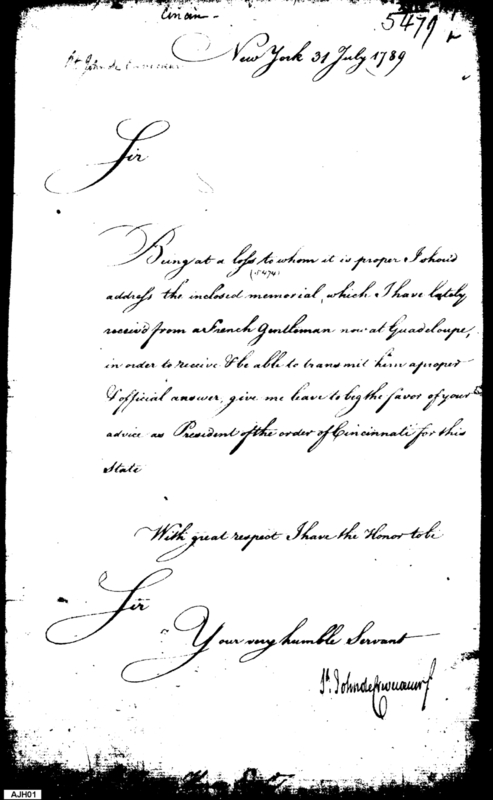 Cincin -
5479
New York 31 July 1789
St John de Crevecoeur
Sir
Being at a loss to whom it is proper I shoud
(5474)
address the inclosed memorial, which I have lately
receivd from a French Gentleman now at Guadeloupe,
in order to receive & be able to transmit him a proper
& official answer, give me leave to beg the favor of your
advice as President of the order of Cincinnati for this
State
With great respect I have the Honor to be
Sir
Your very humble Servant
St. John de Crevecoeur
AJH01